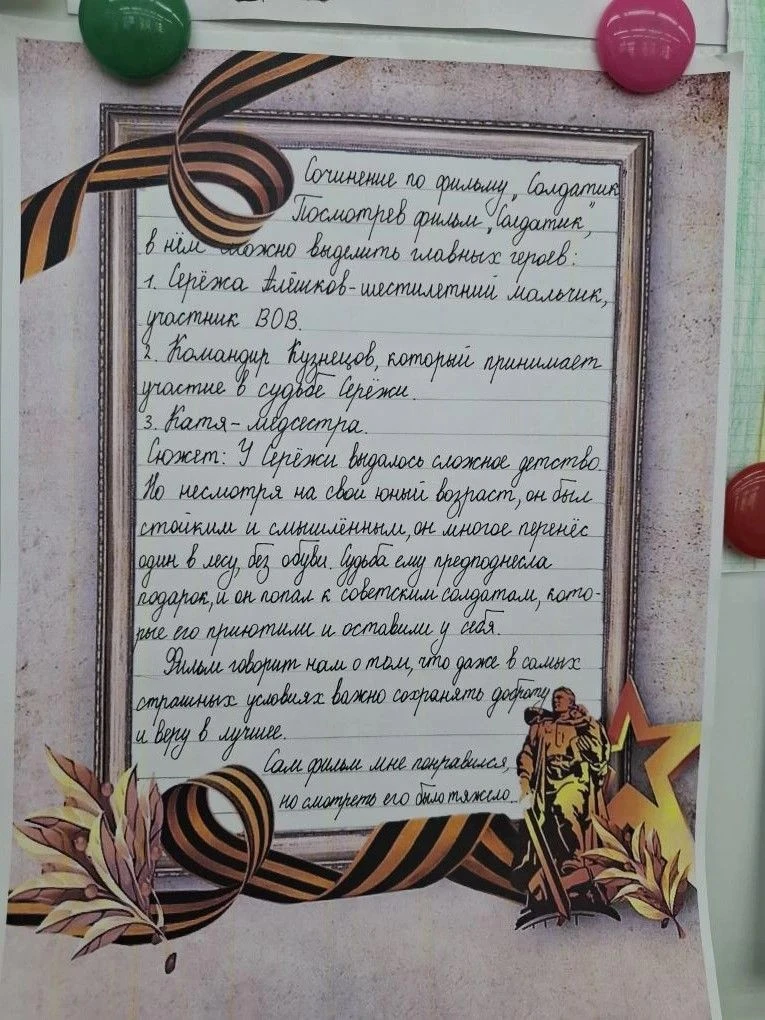 Сочинение по фильму „Солдатик
Посмотрев фильм „Солдатик",
в нём можно выделить главных героев:
1. Серёжа Алёшков-шестилетний мальчик,
участник ВОВ.
2. Командир Кузнецов, который принимает
участие в судьбе Серёжи.
3. Катя-медсестра.
Сюжет: У Серёжи выдалось сложное детство.
Но несмотря на свой юный возраст, он был
стойким и смышлённым, он многое перенёс
один в лесу, без обуви. Судьба ему предподнесла
подарок, и он попал к советским солдатам, кото-
рые его приютили и оставили у себя.
Фильм говорит нам о том, что даже в самых
страшных условиях важно сохранять доброту
и веру в лучшее.
Сам фильм мне понравился,
но смотреть его было тяжело..